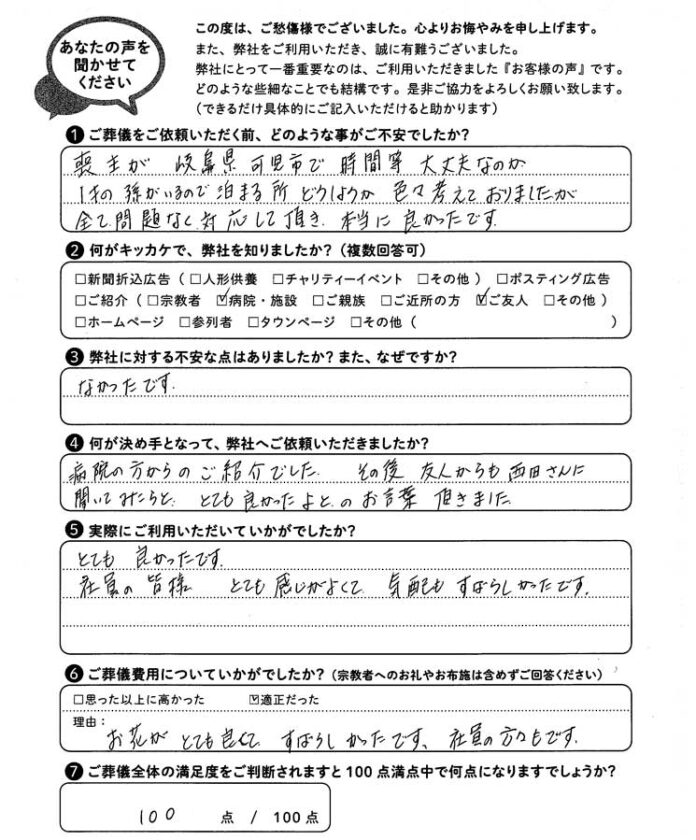 あなたの声を
聞かせて
ください
この度は、ご愁傷様でございました。心よりお悔やみを申し上げます。
また、弊社をご利用いただき、誠に有難うございました。
弊社にとって一番重要なのは、ご利用いただきました『お客様の声』です。
どのような些細なことでも結構です。是非ご協力をよろしくお願い致します。
（できるだけ具体的にご記入いただけると助かります）
❶ご葬儀をご依頼いただく前、どのような事がご不安でしたか？
喪主が 岐阜県可児市で 時間等 大丈夫なのか
1才の孫がいるので 泊まる所 どうしようか 色々考えて おりましたが
全て問題なく対応して頂き、本当に良かったです。
❷何がキッカケで、弊社を知りましたか？（複数回答可）
□新聞折込広告（□人形供養 □チャリティーイベント □その他） □ポスティング広告
□ご紹介（□宗教者 ☑病院・施設 □ご親族 □ご近所の方 ☑ご友人 □その他）
□ホームページ □参列者 □タウンページ □その他（ ）
❸弊社に対する不安な点はありましたか？また、なぜですか？
なかったです。
❹何が決め手となって、弊社へご依頼いただきましたか？
病院の方からの ご紹介でした。 その後 友人からも 西田さんに
聞いてみたらと、とても良かったよと、の お言葉 頂きました。
❺実際にご利用いただいていかがでしたか？
とても 良かったです。
社員の 皆様 とても 感じがよくて 気配も すばらしかったです。
❻ご葬儀費用についていかがでしたか？（宗教者へのお礼やお布施は含めずご回答ください）
□思った以上に高かった ☑適正だった
理由：
お花が とても良くて すばらしかったです、社員の方々もです。
❼ご葬儀全体の満足度をご判断されますと100点満点中で何点になりますでしょうか？
100 点 / 100点